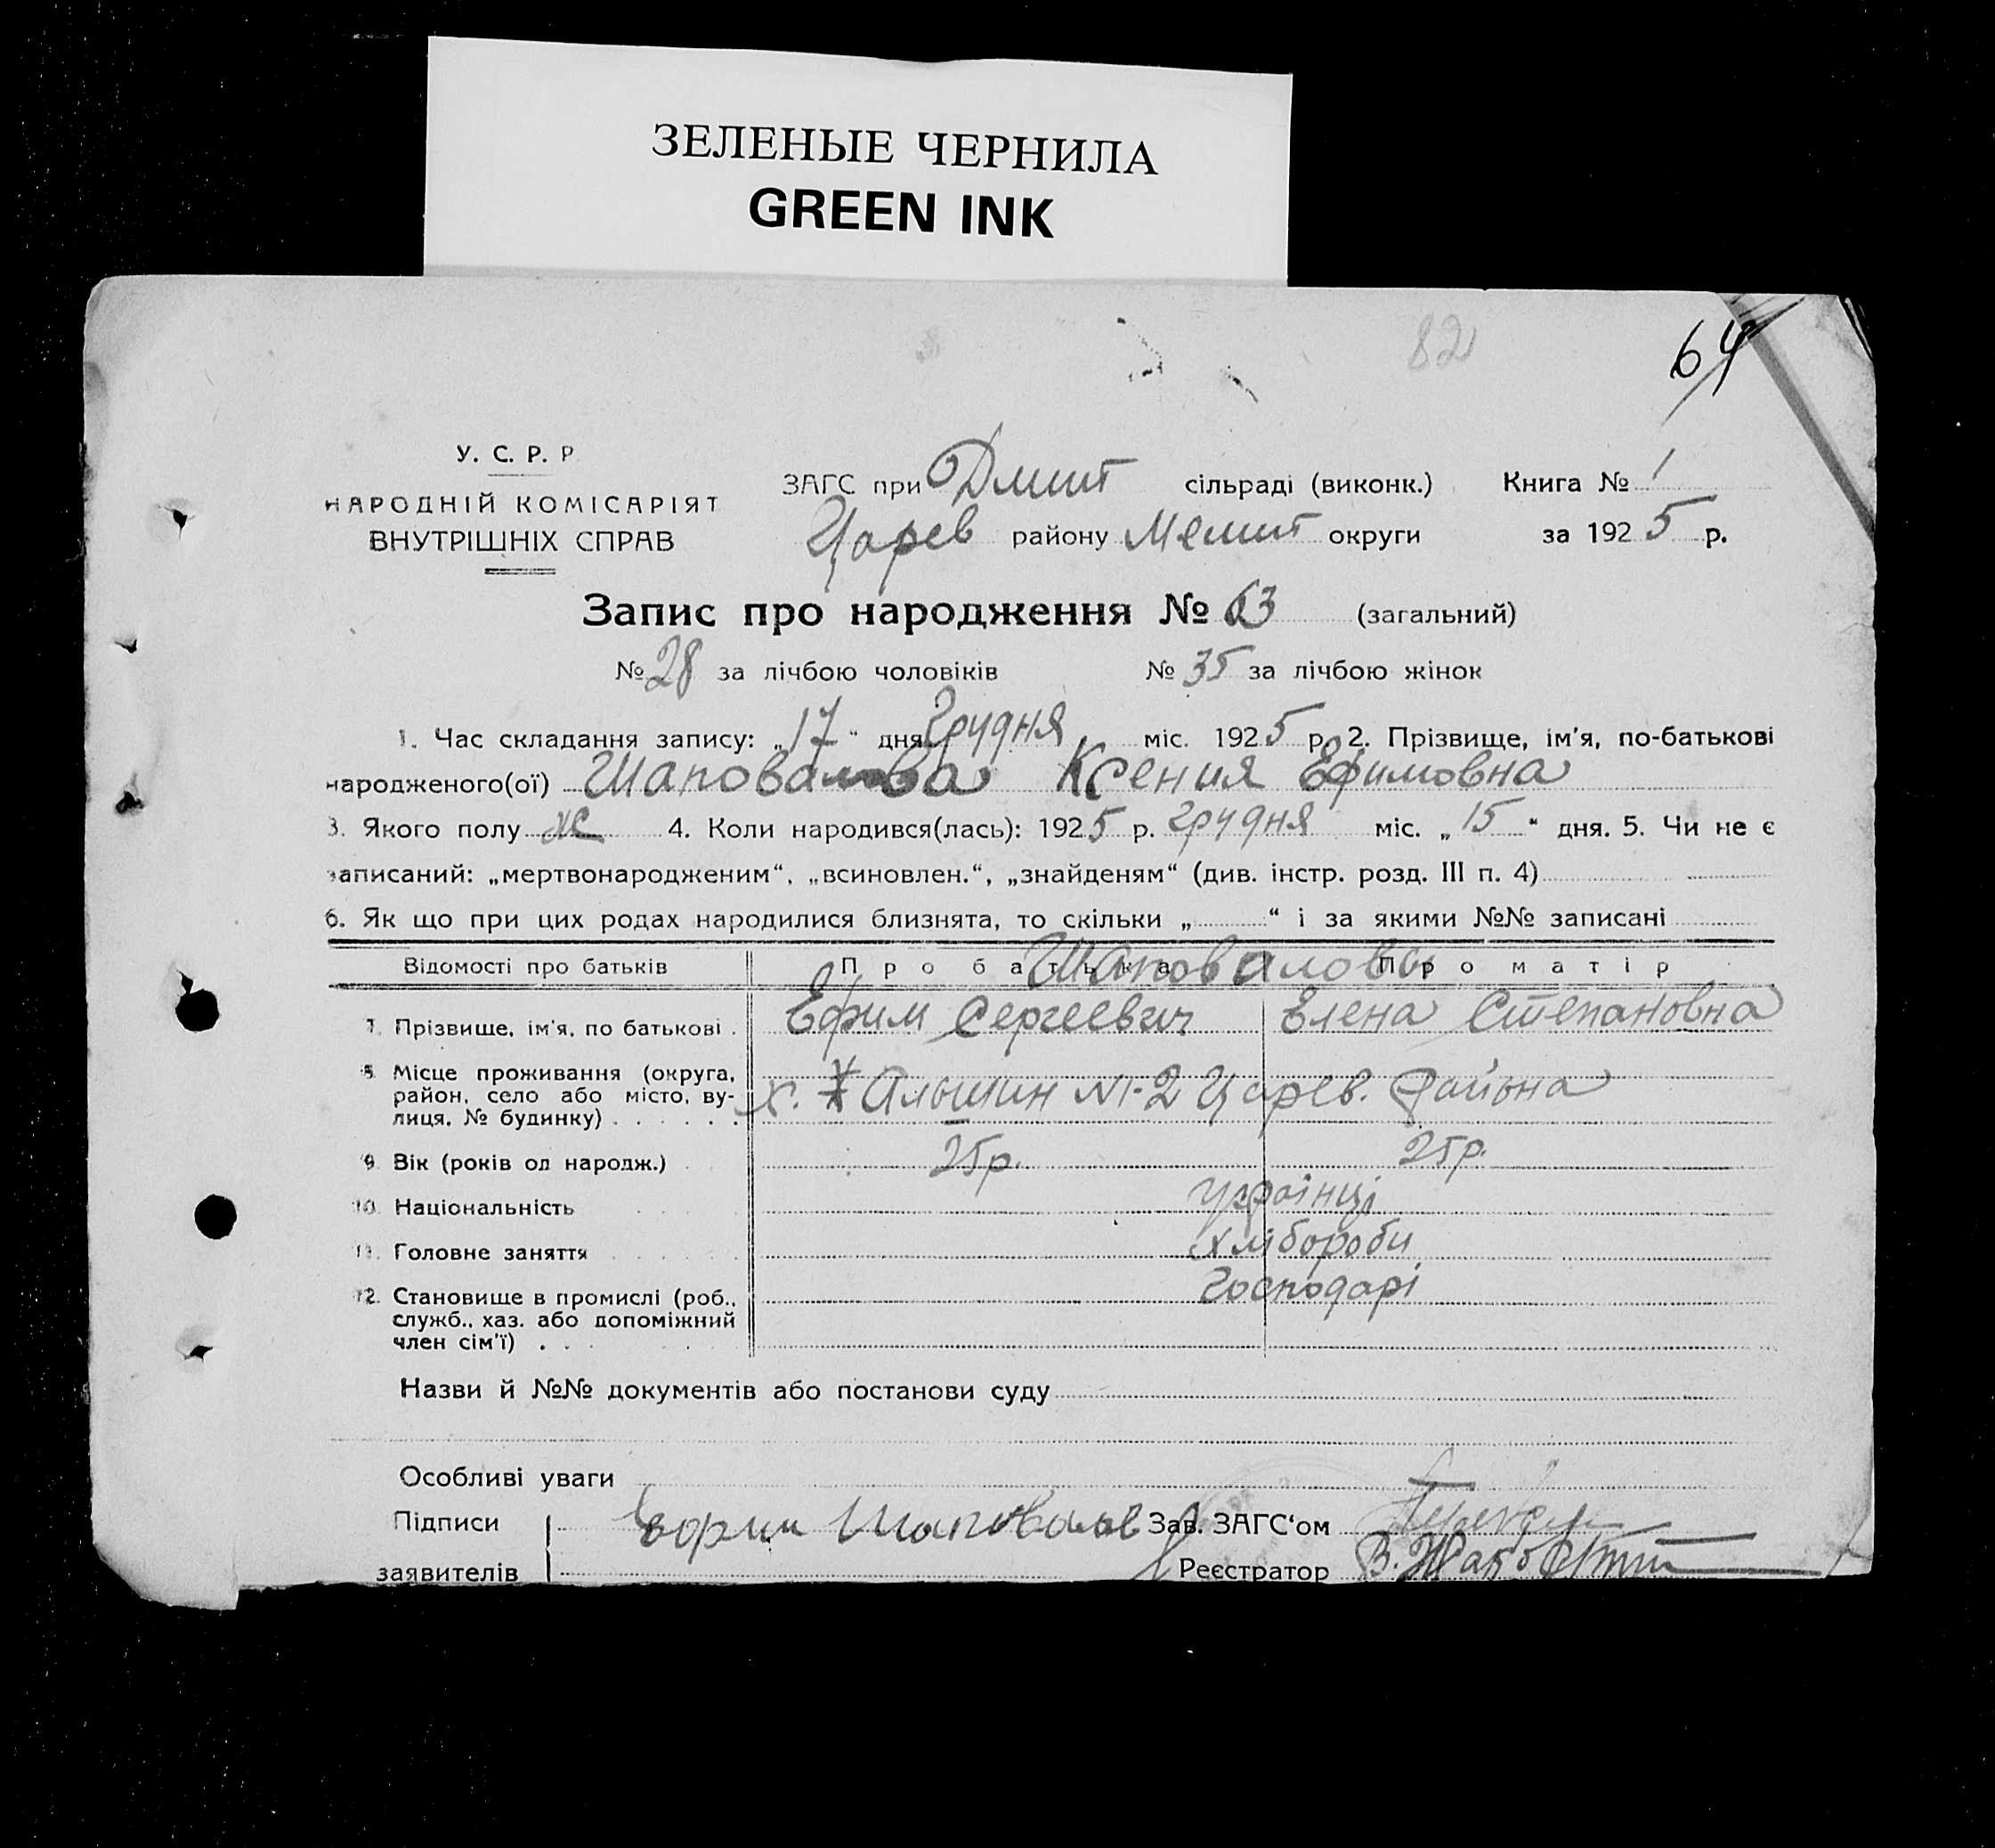 ЗЕЛЕНЫЕ ЧЕРНИЛА
GREEN INK
82
64
У. С. Р. Р
НАРОДНІЙ КОМІСАРІЯТ
ВНУТРІШНІХ СПРАВ
ЗАГС при Дмит сільраді (виконк.) Книга № 1
Царев району Мелит округи за 1925 р.
Запис про народження № 63 (загальний)
№ 28 за лічбою чоловіків № 35 за лічбою жінок
1. Час складання запису: „17" дня Грудня міс. 1925 р. 2. Прізвище, ім'я, по-батькові
народженого(ої) Шаповалова Ксения Ефимовна
3. Якого полу ж 4. Коли народився(лась): 1925 р. Грудня міс. „15" дня. 5. Чи не є
записаний: „мертвонародженим", „всиновлен.", „знайденям" (див. інстр. розд. III п. 4)
6. Як що при цих родах народилися близнята, то скільки „ " і за якими №№ записані
Відомості про батьків Про батька Про матір
Шаповаловы
7. Прізвище, ім'я, по батькові . Ефим Сергеевич Елена Степановна
8. Місце проживання (округа,
район, село або місто, ву-
лиця, № будинку) . . . . . . х. Альшин №-2 Царев. района
9. Вік (років од народж.) 25р. 25р.
10. Національність українці
11. Головне заняття хлібороби
12. Становище в промислі (роб.,
служб., хаз. або допоміжний
член сім'ї) . . . Господарі
Назви й №№ документів або постанови суду
Особливі уваги
Підписи Шаповалов Зав. ЗАГС'ом
заявителів Реєстратор